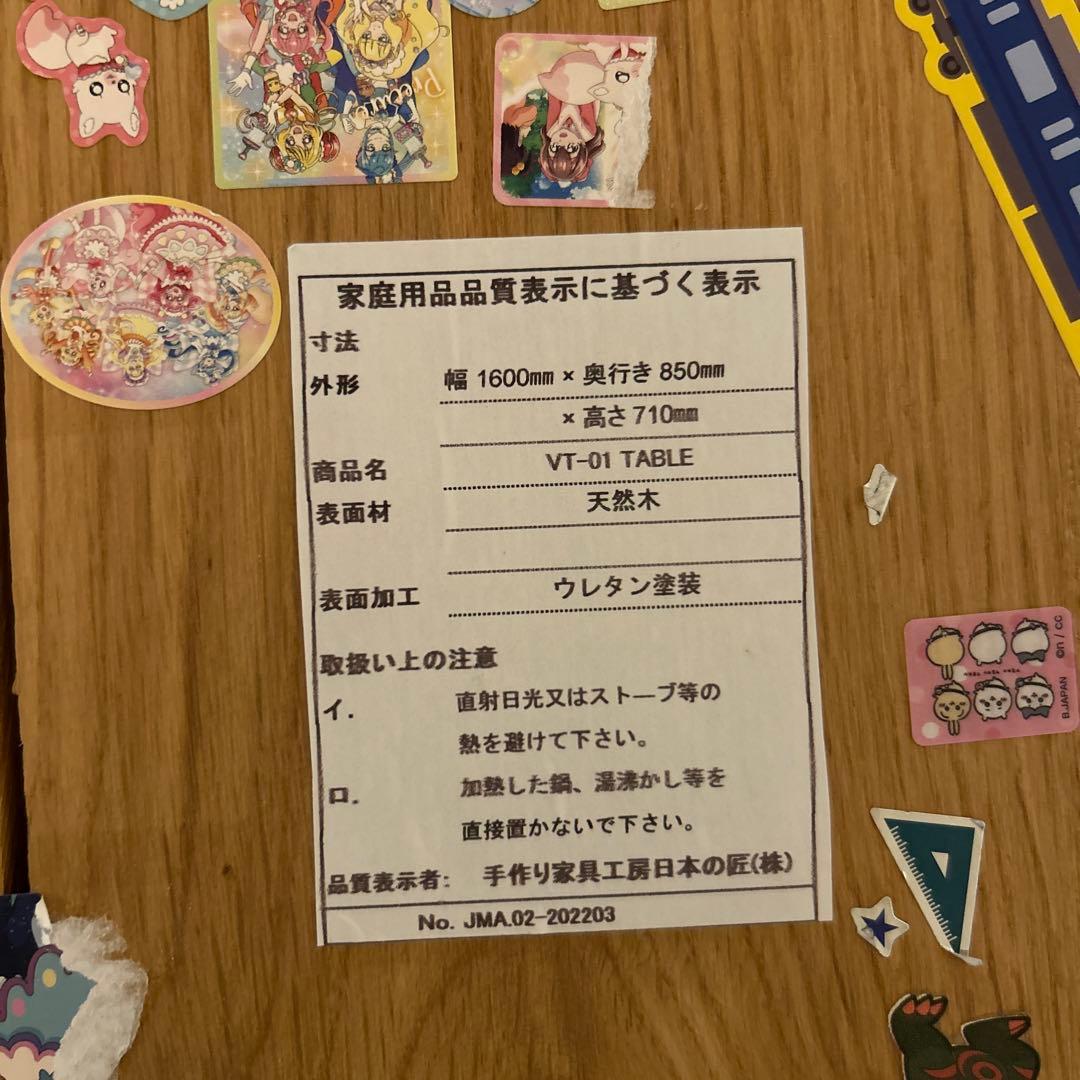 Precure
家庭用品品質表示に基づく表示
寸法
外形 幅 1600㎜ × 奥行き 850㎜
× 高さ 710㎜
商品名 VT-01 TABLE
表面材 天然木
表面加工 ウレタン塗装
取扱い上の注意
イ. 直射日光又はストーブ等の
熱を避けて下さい。
ロ. 加熱した鍋、湯沸かし等を
直接置かないで下さい。
品質表示者: 手作り家具工房日本の匠(株)
No. JMA.02-202203
©n / CC
B.JAPAN